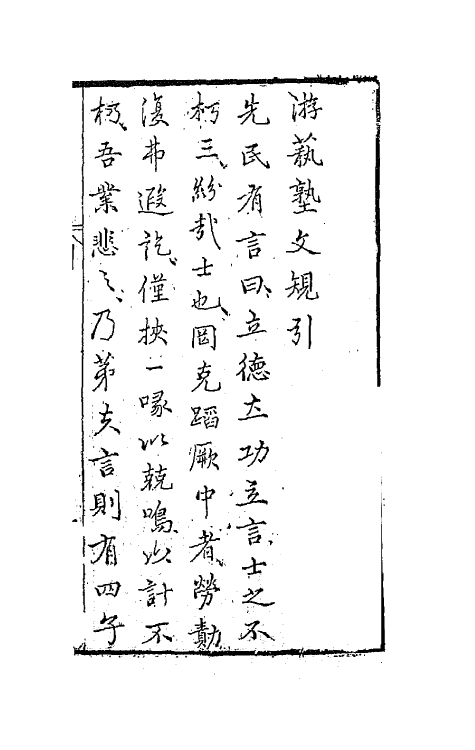 游藝塾文規引
先民有言曰立德立功立言士之不
朽三紛哉士也罔克蹈厥中者勞勩
復弗遐訖僅挾一喙以競鳴以計不
朽吾業悲之乃第夫言則有四子